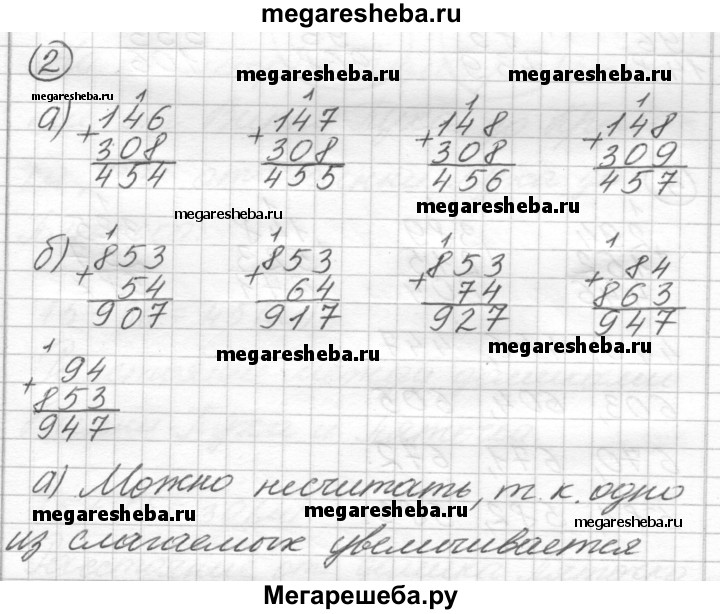 megaresheba.ru
2
megaresheba.ru megaresheba.ru
megaresheba.ru
1 1 1 1
а) +146 +147 +148 +148
308 308 308 309
454 455 456 457
megaresheba.ru megaresheba.ru
1 1 1 1
б) +853 +853 +853 +84
54 64 74 863
907 917 927 947
megaresheba.ru megaresheba.ru
1
+94
853
947
а) Можно несчитать, т. к. одно
megaresheba.ru megaresheba.ru megaresheba.ru
из слагаемых увеличивается
Мегарешеба.ру